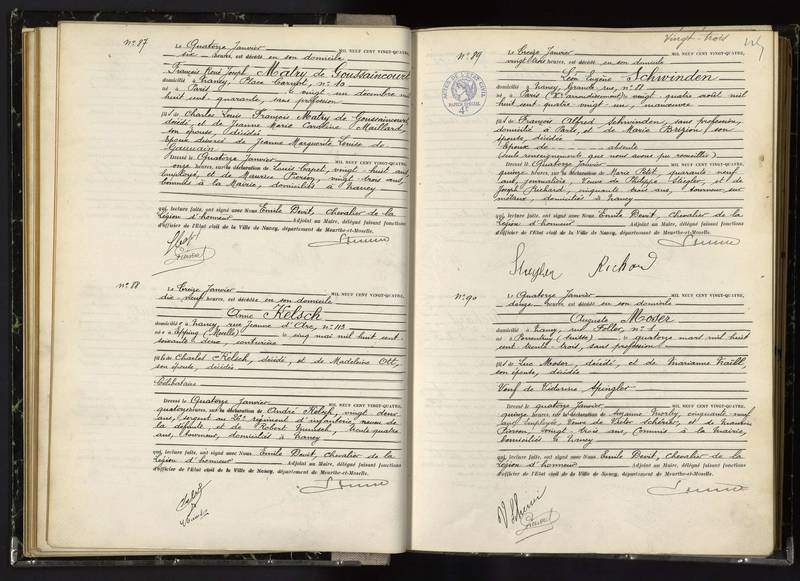 N° 87
Le Quatorze Janvier MIL NEUF CENT VINGT-QUATRE,
six heures, est décédé en son domicile
François René Joseph Matry de Goussaincourt
domicilié à Nancy, Place Carnot, n° 10
né à Paris le vingt un décembre mil
huit cent quarante, sans profession
fils de Charles Louis François Matry de Goussaincourt,
décédé, et de Jeanne Marie Caroline Maillard,
son épouse, décédée
Epoux divorcé de Jeanne Marguerite Louise de
Devant le Quatorze Janvier MIL NEUF CENT VINGT-QUATRE,
onze heures, sur la déclaration de Louis Capet, vingt huit ans,
Employé, et de Maurice Pierson, vingt trois ans,
Commis à la Mairie, domiciliés à Nancy
qui, lecture faite, ont signé avec Nous Emile Devit, Chevalier de la
Légion d'honneur Adjoint au Maire, délégué faisant fonctions
d'officier de l'Etat civil de la Ville de Nancy, département de Meurthe-et-Moselle.
N° 88
Le Treize Janvier MIL NEUF CENT VINGT-QUATRE,
dix neuf heures, est décédée en son domicile
Anne Kelsch
domiciliée à Nancy, rue Jeanne d'Arc, n° 113
née à Epping (Moselle) le cinq mai mil huit cent
soixante deux, couturière
fille de Charles Kelsch, décédé, et de Madeleine Ott,
son épouse, décédée
Célibataire
Devant le Quatorze Janvier MIL NEUF CENT VINGT-QUATRE,
quatorze heures, sur la déclaration de André Kelsch, vingt deux
ans, sergent au régiment d'infanterie, neveu de
la défunte, et de Robert Munsch, trente quatre
ans, tourneur, domiciliés à Nancy
qui, lecture faite, ont signé avec Nous Emile Devit, Chevalier de la
Légion d'honneur Adjoint au Maire, délégué faisant fonctions
d'officier de l'Etat civil de la Ville de Nancy, département de Meurthe-et-Moselle.
Vingt-trois
N° 89
Le Treize Janvier MIL NEUF CENT VINGT-QUATRE,
vingt trois heures, est décédé en son domicile
Léon Eugène Schwinden
domicilié à Nancy, Grande rue, n° 12
né à Paris (X° arrondissement) le vingt quatre août mil
huit cent quatre vingt un, manœuvre
fils de François Alfred Schwinden, sans profession,
domicilié à Paris, et de Marie Brizion, son
épouse, décédée
Epoux de absente
(seuls renseignements que nous avons pu recueillir)
Devant le Quatorze Janvier MIL NEUF CENT VINGT-QUATRE,
quinze heures, sur la déclaration de Marie Petit, quarante neuf
ans, journalière, Veuve de Philippe Stiegler, et de
Joseph Richard, cinquante trois ans, tourneur sur
métaux, domiciliés à Nancy
qui, lecture faite, ont signé avec Nous Emile Devit, Chevalier de la
Légion d'honneur Adjoint au Maire, délégué faisant fonctions
d'officier de l'Etat civil de la Ville de Nancy, département de Meurthe-et-Moselle.
Richard
N° 90
Le Quatorze Janvier MIL NEUF CENT VINGT-QUATRE,
douze heures, est décédé en son domicile
Auguste Moser
domicilié à Nancy, rue Foller, n° 1
né à Porrentruy (Suisse) le quatorze mars mil huit
cent trente trois, sans profession
fils de Luc Moser, décédé, et de Marianne
son épouse, décédée
Veuf de Victorine Spingler
Devant le Quatorze Janvier MIL NEUF CENT VINGT-QUATRE,
quinze heures, sur la déclaration de Suzanne cinquante neuf
ans, Employée, Veuve de Victor et de Maurice
Pierson, vingt trois ans, Commis à la Mairie,
domiciliés à Nancy
qui, lecture faite, ont signé avec Nous Emile Devit, Chevalier de la
Légion d'honneur Adjoint au Maire, délégué faisant fonctions
d'officier de l'Etat civil de la Ville de Nancy, département de Meurthe-et-Moselle.